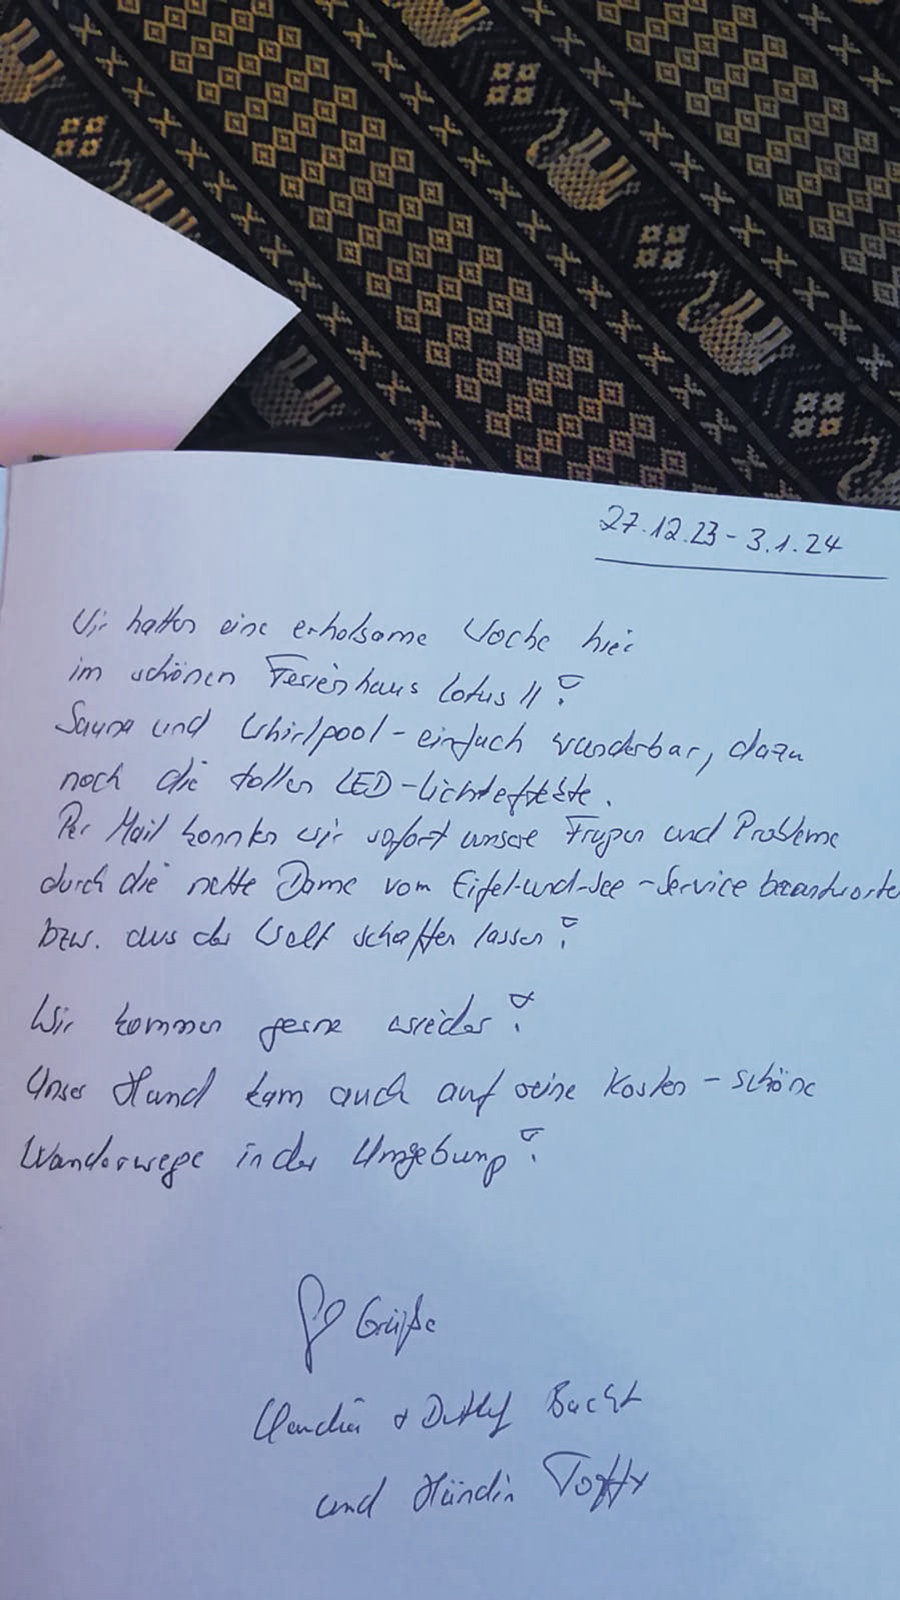 27.12.23 - 3.1.24
Wir hatten eine erholsame Woche hier
im schönen Ferienhaus Lotus II!
Sauna und Whirlpool - einfach wunderbar, dazu
noch die tollen LED-Lichteffekte.
Per Mail konnten wir sofort unsere Fragen und Probleme
durch die nette Dame vom Eifel-und-See-Service beantworten
bzw. aus der Welt schaffen lassen!
Wir kommen gerne wieder!
Unser Hund kam auch auf seine Kosten - schöne
Wanderwege in der Umgebung!
Grüße
Claudia + Detlef
und Hündin Toffy